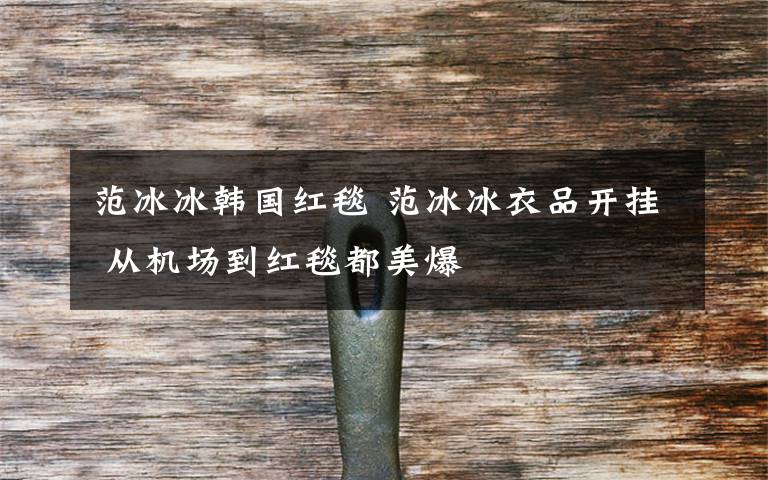 范冰冰韩国红毯 范冰冰衣品开挂
从机场到红毯都美爆